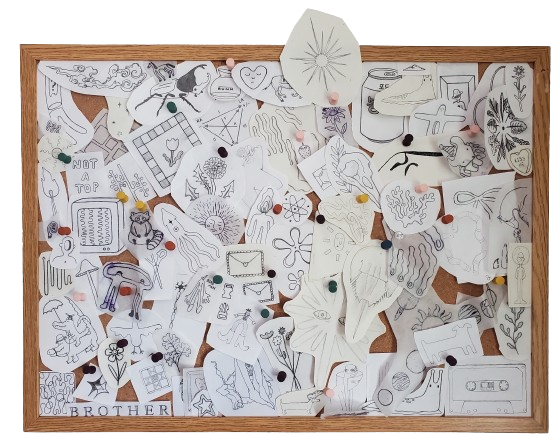 NOT
A
TOP
BROTHER